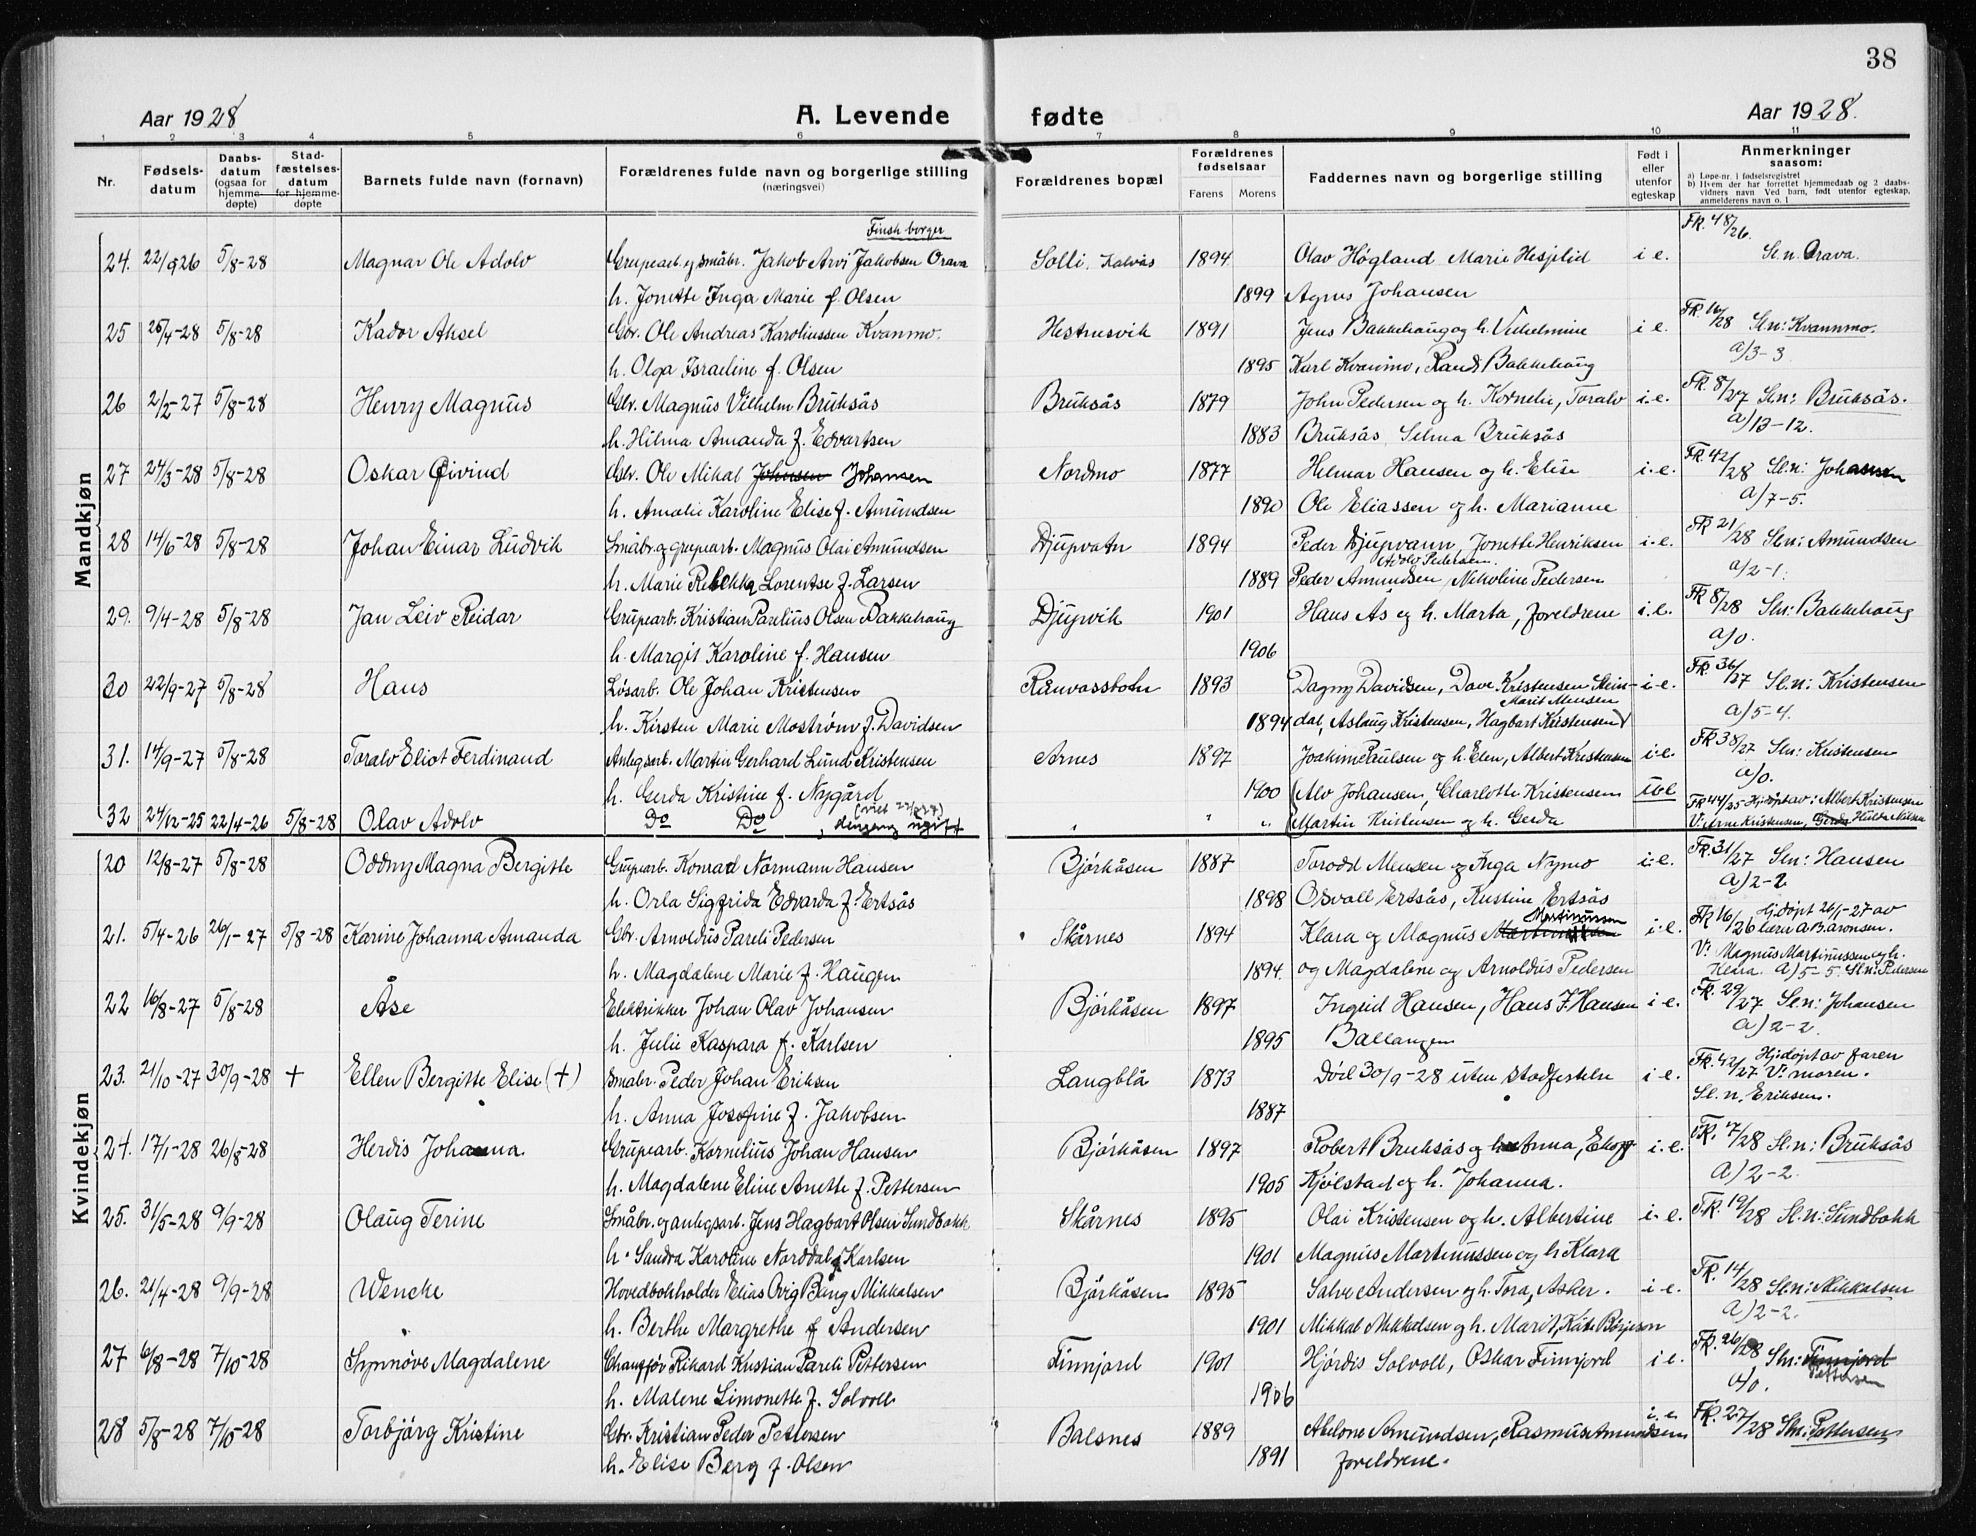 38
Aar 1928 A. Levende fødte Aar 1928.
1 2 3 4 5 6 7 8 9 10 11
Nr. Fødsels-datum Daabs-datum (ogsaa for hjemme-døpte) Stad-fæstelses-datum for hjemme-døpte Barnets fulde navn (fornavn) Forældrenes fulde navn og borgerlige stilling (næringsvei) Forældrenes bopæl Forældrenes fødselsaar Farens Morens Faddernes navn og borgerlige stilling Født i eller utenfor egteskap Anmerkninger saasom:
a) Løpe-nr. i fødselsregistret
b) Hvem der har forrettet hjemmedaab og 2 daabs-vidners navn. Ved barn, født utenfor egteskap, anmelderens navn o. l
Mandkjøn
Finsk borger FR. 48/26.
24. 22/9 26 5/8-28 Magnar Ole Adolv Grupearb. og småbr. Jakob Arvi Jakobsen Orava Solli, Kalvås 1894 Olav Høgland Marie Hesjelid i e. Sl.n. Orava.
h. Jonette Inga Marie f. Olsen 1899 Agnes Johansen
25 25/4-28 5/8-28 Kador Aksel Gbr. Ole Andreas Karoliussen Kvanmo. Hestnesvik 1891 Jens Bakkehaug og h. Vilhelmine i e. FR. 16/28 Sln: Kvannmo.
h. Olga Israeline f. Olsen 1895 Karl Kvanmo, Randi Bakkehaug a/3-3
26 2/2-27 5/8-28 Henry Magnus Gbr. Magnus Vilhelm Bruksås Bruksås 1879 John Pedersen og h. Kornelie, Toralv i.e. FR. 8/27 Sln: Bruksås.
h. Hilma Amanda f. Edvartsen 1883 Bruksås, Selma Bruksås a/13-12.
27 24/3-28 5/8-28 Oskar Øivind Gbr. Ole Mikal Johnsen Johansen Nordmo 1877 Helmar Hansen og h. Elise i.e. FR. 42/28 Sl.n: Johansen
h. Amalie Karoline Elise f. Amundsen 1890 Ole Eliassen og h. Marianne a/7-5.
28 14/6-28 5/8-28 Johan Einar Ludvik Småbr. og grupearb. Magnus Olai Amundsen Djupvatn 1894 Peder Djupvann, Jonette Henriksen i.e. FR 21/28 Sln: Amundsen
Adolv Pedersen.
h. Marie Rebekka Lorentse f. Larsen 1889 Peder Amundsen, Nikoline Pedersen a/2-1.
29. 9/4-28 5/8-28 Jan Leiv Reidar Grupearb. Kristian Parelius Olsen Bakkehaug Djupvik 1901 Hans Ås og h. Marta, foreldrene i.e. FR 8/28 Sln: Bakkehaug
h. Margit Karoline f. Hansen 1906 a/0.
30 22/9-27 5/8-28 Hans Løsarb. Ole Johan Kristensen 1893 Dagny Davidsen, Dave Kristensen Stein- i-e. FR. 36/27 Sl.n: Kristensen
Marit Mensen
h. Kirsten Marie Mostrøm f. Davidsen 1894 dal, Aslaug Kristensen, Hagbart Kristensen a/5-4.
31. 14/9-27 5/8-28 Toralv Eliot Ferdinand Anlegsarb. Martin Gerhard Lund Kristensen Arnes 1897 Joakim Paulsen og h. Elen, Albert Kristensen i-e. FR 38/27 Sln: Kristensen
h. Gerda Kristine f. Nygård 1900 Alv Johansen, Charlotte Kristensen u.e a/0.
32 24/12-25 22/4-26 5/8-28 Olav Adolv Do Do, dengang ugift " " " Martin Kristensen og h. Gerda FR 44/25 Hj.døpt av: Albert Kristensen
V: Arne Kristensen, Gerda Hulda Nilsen
Kvindekjøn
20 12/8-27 5/8-28 Oddny Magna Bergitte Grupearb. Konrad Normann Hansen Bjørkåsen 1887 Torodd Mensen og Inga Nymo i.e. FR. 31/27 Sln: Hansen
h. Orla Sigfrida Edvarda f. Ertsås 1898 Osvall Ertsås, Kristine Ertsås a)2-2
Martinussen
21. 5/4-26 26/1-27 5/8-28 Karine Johanna Amanda Gbr. Arnoldus Pareli Pedersen Skårnes 1894 Klara og Magnus i.e. FR 16/26 Hj.døpt 26/1-27 av lærer A. B. Aronsen.
h. Magdalene Marie f. Haugen 1894. og Magdalene og Arnoldus Pedersen V: Magnus Martinussen og h. Klara. a)5-5. Sl.n: Pedersen
22 16/8-27 5/8-28 Åse Elektrikker Johan Olav Johansen Bjørkåsen 1897 Ingrid Hansen, Hans F. Hansen i e. FR. 29/27 Sl.n: Johansen
h. Julie Kaspara f. Karlsen 1895 Ballangen a)2-2.
23. 21/10-27 30/9-28 + Ellen Bergitte Elise (+) Småbr. Peder Johan Eriksen Langblå 1873 Død 30/9-28 uten stadfestelse i e. FR. 42/27 Hj.døpt av faren V: moren.
h. Anna Josefine f. Jakobsen 1887 Sl. n. Eriksen.
24. 17/1-28 26/8-28 Herdis Johanna Grupearb. Kornelius Johan Hansen Bjørkåsen 1897 Robert Bruksås og h. Anna, i.e. FR. 7/28 Sl.n: Bruksås
h. Magdalene Eline Anette f. Pettersen 1905 Kjølstad og h. Johanna. a)2-2.
25. 31/5-28 9/9-28 Olaug Terine Småbr. og anlegsarb. Jens Hagbart Olsen Sundbakk Skårnes 1895 Olai Kristensen og h. Albertine i-e. FR. 19/28 Sl.n: Sundbakk
h. Sandra Karoline Norddal f. Karlsen 1901 Magnus Martinussen og h. Klara
26. 21/4-28 9/9-28 Wencke Hovedbokholder Elias Ovig Bang Mikkalsen Bjørkåsen 1895 Salve Andersen og h. Tora, Asker. i-e. FR. 14/28 Sl.n: Mikkalsen
h. Berthe Margrethe f Andersen 1901 Mikkal Mikkalsen og h. Marit, Kåte Børjeson a)2-2.
27 6/8-28 7/10-28 Synnøve Magdalene Chauffør Rikard Kristian Pareli Pettersen Finnjord 1901 Hjørdis Solvoll, Oskar Finnjord i e. FR. 26/28 Sln: Finnjord Pettersen
h. Malene Simonette f. Solvoll 1906 a/0.
28 5/8-28 7/10-28 Torbjørg Kristine Gbr. Kristian Peder Pettersen Balsnes 1889 Abelone Amundsen, Rasmus Amundsen i.e FR. 27/28 Sln: Pettersen
h. Elise Berg f. Olsen 1891 foreldrene.